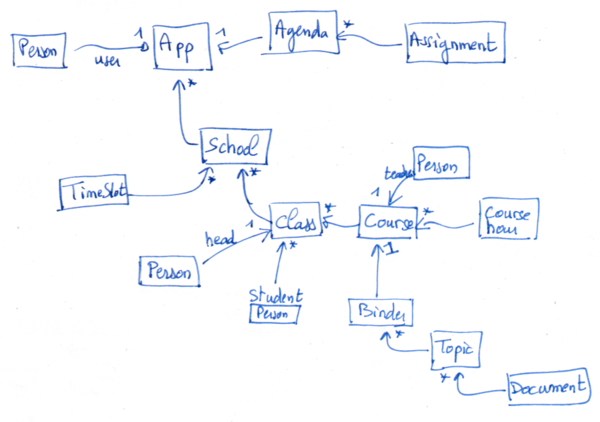 Person
user
1
App
1
Agenda
*
Assignment
*
School
*
*
TimeSlot
teacher
Person
1
head
1
Class
*
*
Course
*
Course
hour
1
Person
Student
Person
Binder
*
Topic
*
Document